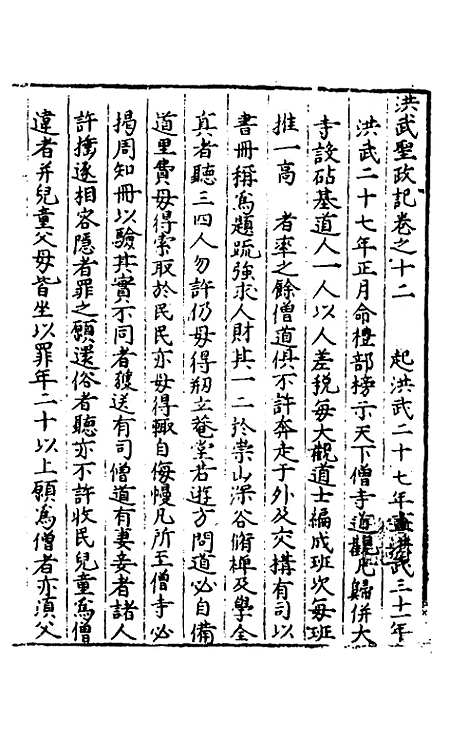 洪武聖政記卷之十二　　起洪武二十七年盡洪武三十一年
洪武二十七年正月命禮部榜示天下僧寺道觀凡歸併大
寺設砧基道人一人以人差税每大觀道士編成班次每班
推一高　者率之餘僧道俱不許奔走于外及交搆有司以
書冊稱爲題疏強求人財其一二扵崇山深谷脩禪及學全
真者聽三四人勿許仍毋得刱立菴堂若逰方問道必自備
道里費毋得索取於民民亦毋得輙自侮慢凡所至僧寺必
揭周知冊以驗其實不同者獲送有司僧道有妻妾者諸人
許搥逐相容隱者罪之願還俗者聽亦不許收民兒童爲僧
違者并兒童父母皆坐以罪年二十以上願爲僧者亦湏父